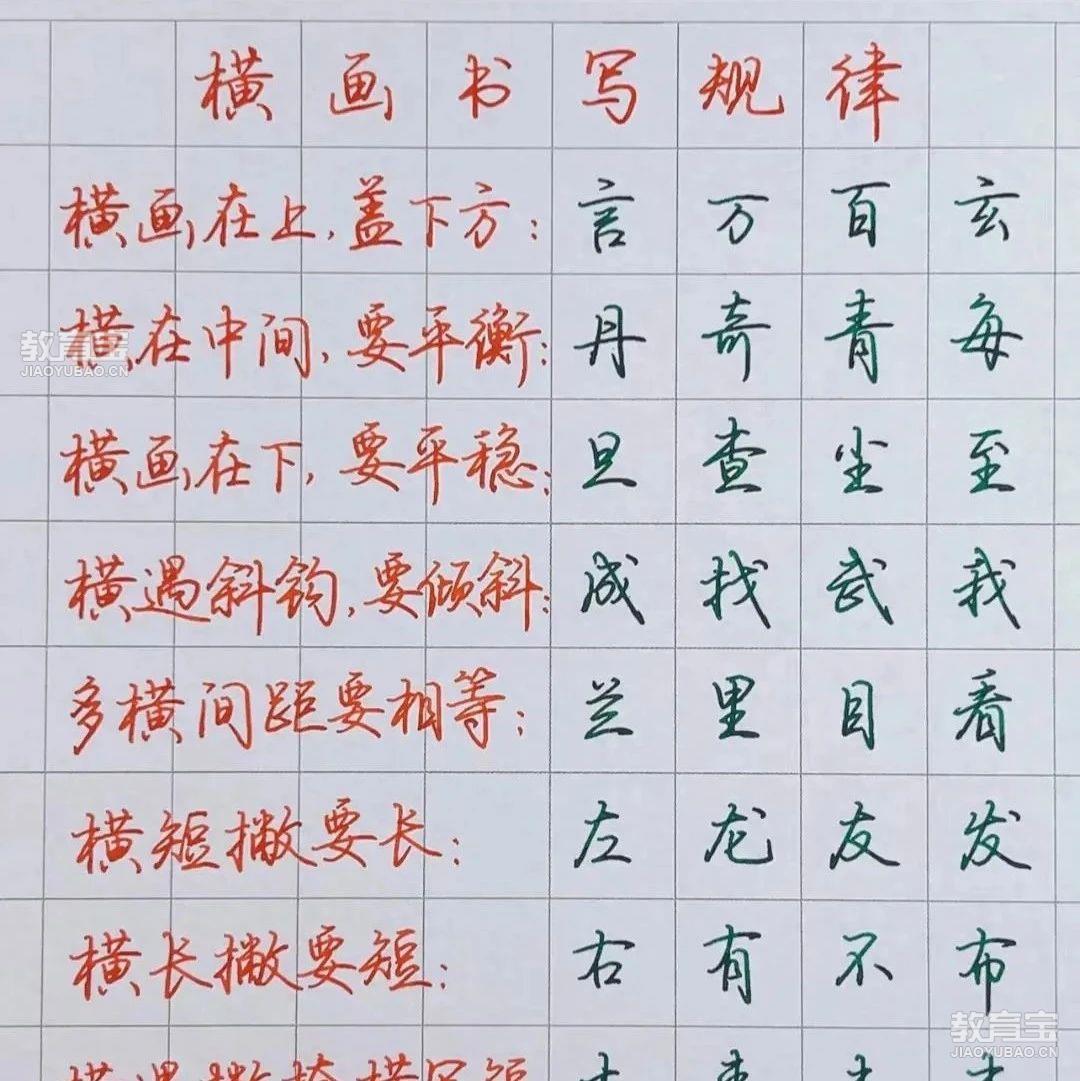 横画书写规律
横画在上,盖下方:言万百玄
横在中间,要平衡:丹奇青每
教育宝
JIAOYUBAO.CN
横画在下,要平稳:旦查尘至
横遇斜钩,要倾斜:成找武我
多横间距要相等:兰里目看
横短撇要长:左龙友发
横长撇要短:右有不布
教育宝
JIAOYUBAO.CN